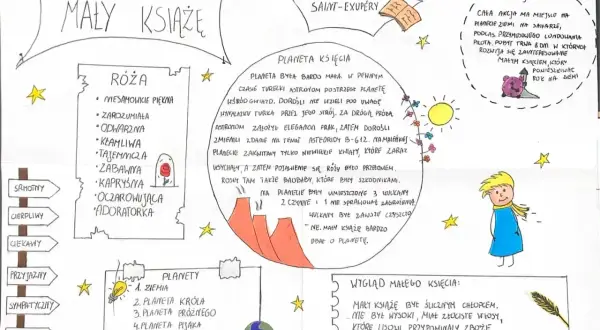 MAŁY KSIĄŻĘ
SAINT-EXUPÉRY
CAŁA AKCJA MA MIEJSCE NA
PLANECIE ZIEMI NA SAHARZE,
PODCZAS PRZYMUSOWEGO LĄDOWANIA
PILOTA. POBYT TRWA 8 DNI W KTÓRYCH
ROZWIJA SIĘ ZAINTERESOWANIE
MAŁYM KSIĘCIEM, KTÓRY
ROK NA ZIEMI
RÓŻA
• NIESAMOWICIE PIĘKNA
• ZAROZUMIAŁA
• ODWAŻNA
• KŁAMLIWA
• TAJEMNICZA
• ZABAWNA
• KAPRYŚNA
• OCZAROWUJĄCA
• ADORATORKA
PLANETA KSIĘCIA
PLANETA BYŁA BARDO MAŁA. W PEWNYM
CZASIE TURECKI ASTRONOM DOSTRZEGŁ PLANETĘ
WŚRÓD GWIAZD. DOROŚLI NIE WZIĘLI POD UWAGĘ
TURKA PRZEZ JEGO STRÓJ, ZA DRUGĄ PRÓBĄ
ASTRONOM ZAŁOŻYŁ ELEGANCKI FRAK, ZATEM DOROŚLI
ZMIENILI ZDANIE NA TEMAT ASTEROIDY B-612. NA MALEŃKIEJ
PLANECIE ZAKWITAŁY TYLKO NIEWIELKIE KWIATY, KTÓRE ZARAZ
A ZATEM POJAWIENIE SIĘ RÓŻY BYŁO PRZEŁOMEM.
ROSŁY TAM TAKŻE BAOBABY, KTÓRE BYŁY SZKODNIKAMI.
NA PLANECIE BYŁY UMIESZCZONE 3 WULKANY
2 CZYNNE I 1 NIE
WULKANY BYŁY ZAWSZE CZYSZCZO-
-NE. MAŁY KSIĄŻĘ BARDZO
DBAŁ O PLANETĘ.
SAMOTNY
CIERPLIWY
CIEKAWY
PRZYJAZNY
SYMPATYCZNY
PLANETY
1. ZIEMIA
2. PLANETA KRÓLA
3. PLANETA PRÓŻNEGO
4. PLANETA PIJAKA
WYGLĄD MAŁEGO KSIĘCIA:
MAŁY KSIĄŻĘ BYŁ ŚLICZNYM CHŁOPCEM.
NIE BYŁ WYSOKI, MIAŁ ZŁOCISTE WŁOSY,
KTÓRE LISOWI PRZYPOMINAŁY ZBOŻE